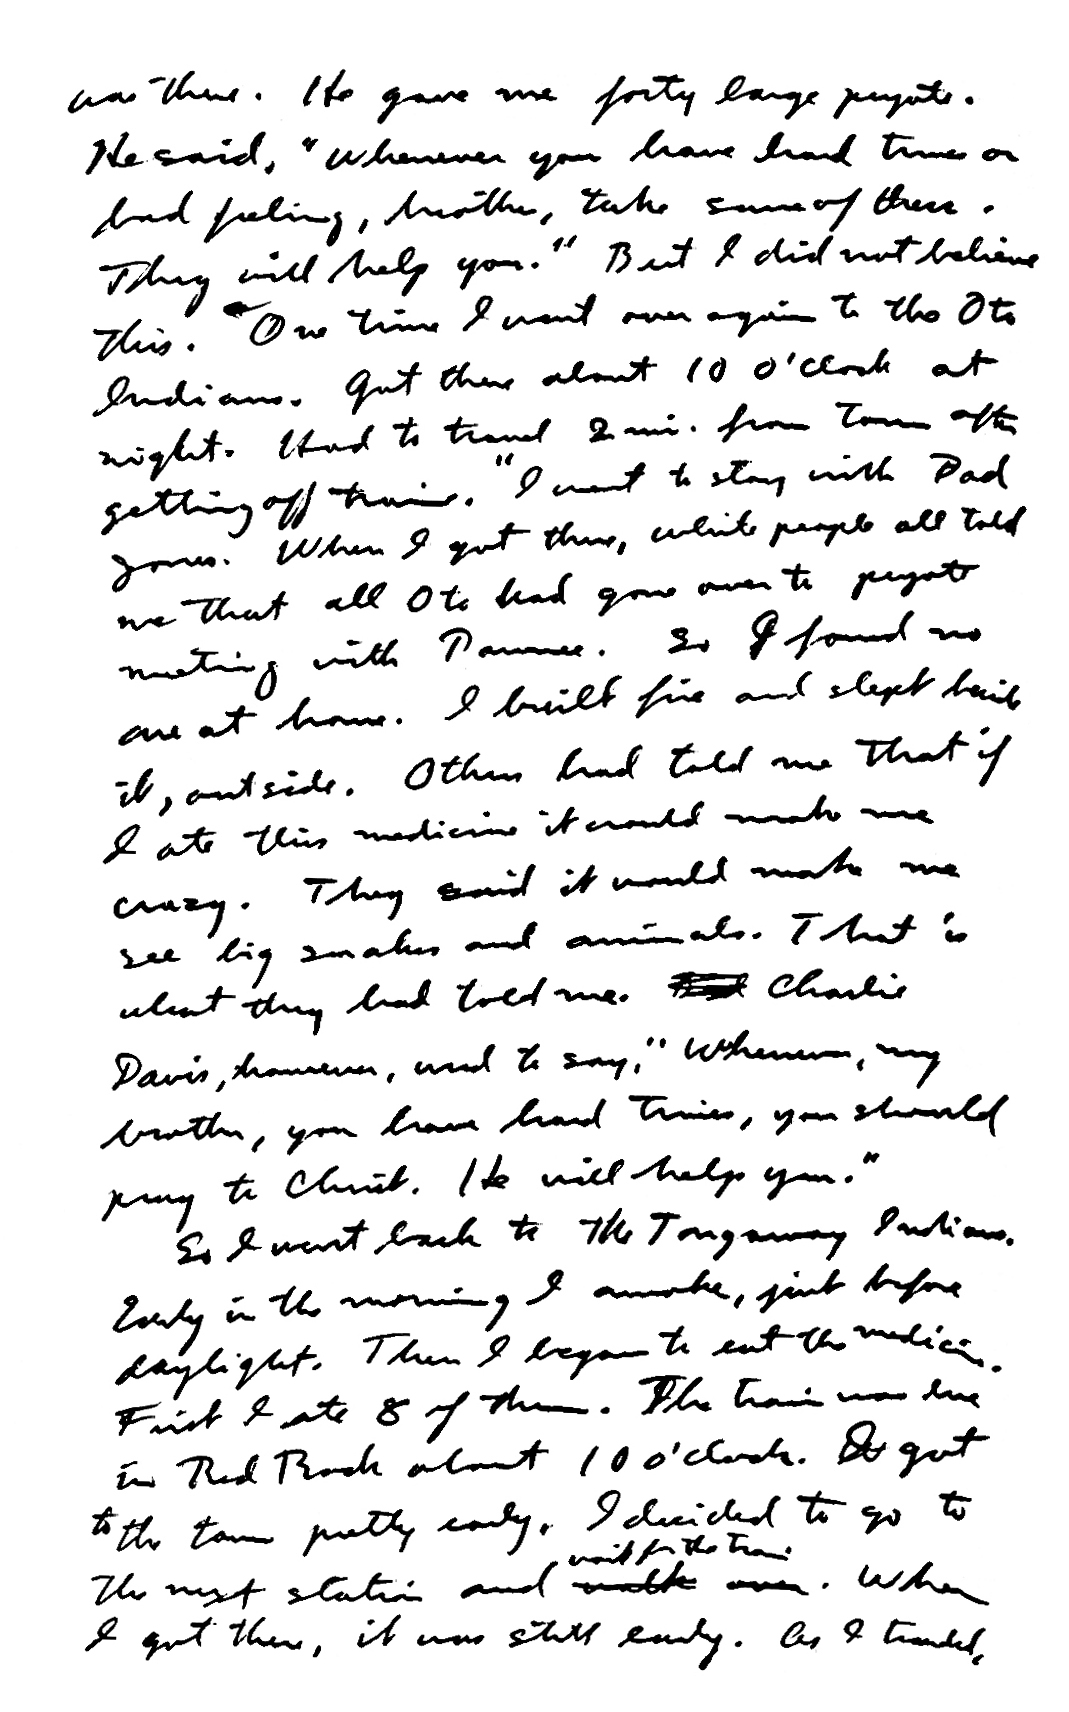 was there. He gave me forty large peyote.
He said, "Whenever you have hard times or
bad feeling, brother, take some of these.
They will help you." But I did not believe
this. "One time I went over again to the Oto
Indians. Got there about 10 o'clock at
night. Had to travel 2 mi. from town after
getting off train. "I went to stay with Dad
Jones. When I got there, white people all told
me that all Oto had gone over to peyote
meeting with Pawnee. So I found no
one at home. I built fire and slept beside
it, outside. Others had told me that if
I ate this medicine it would make me
crazy. They said it would make me
see big snakes and animals. That is
what they had told me. Charlie
Davis, however, used to say, "Whenever, my
brother, you have hard times, you should
pray to Christ. He will help you."
So I went back to the Tongaway Indians.
Early in the morning I awoke, just before
daylight. Then I began to eat the medicine.
First I ate 8 of them. The train was due
in Red Rock about 10 o'clock. So got
to the town pretty early. I decided to go to
the next station and wait for the train walk over. When
I got there, it was still early. As I traveled,